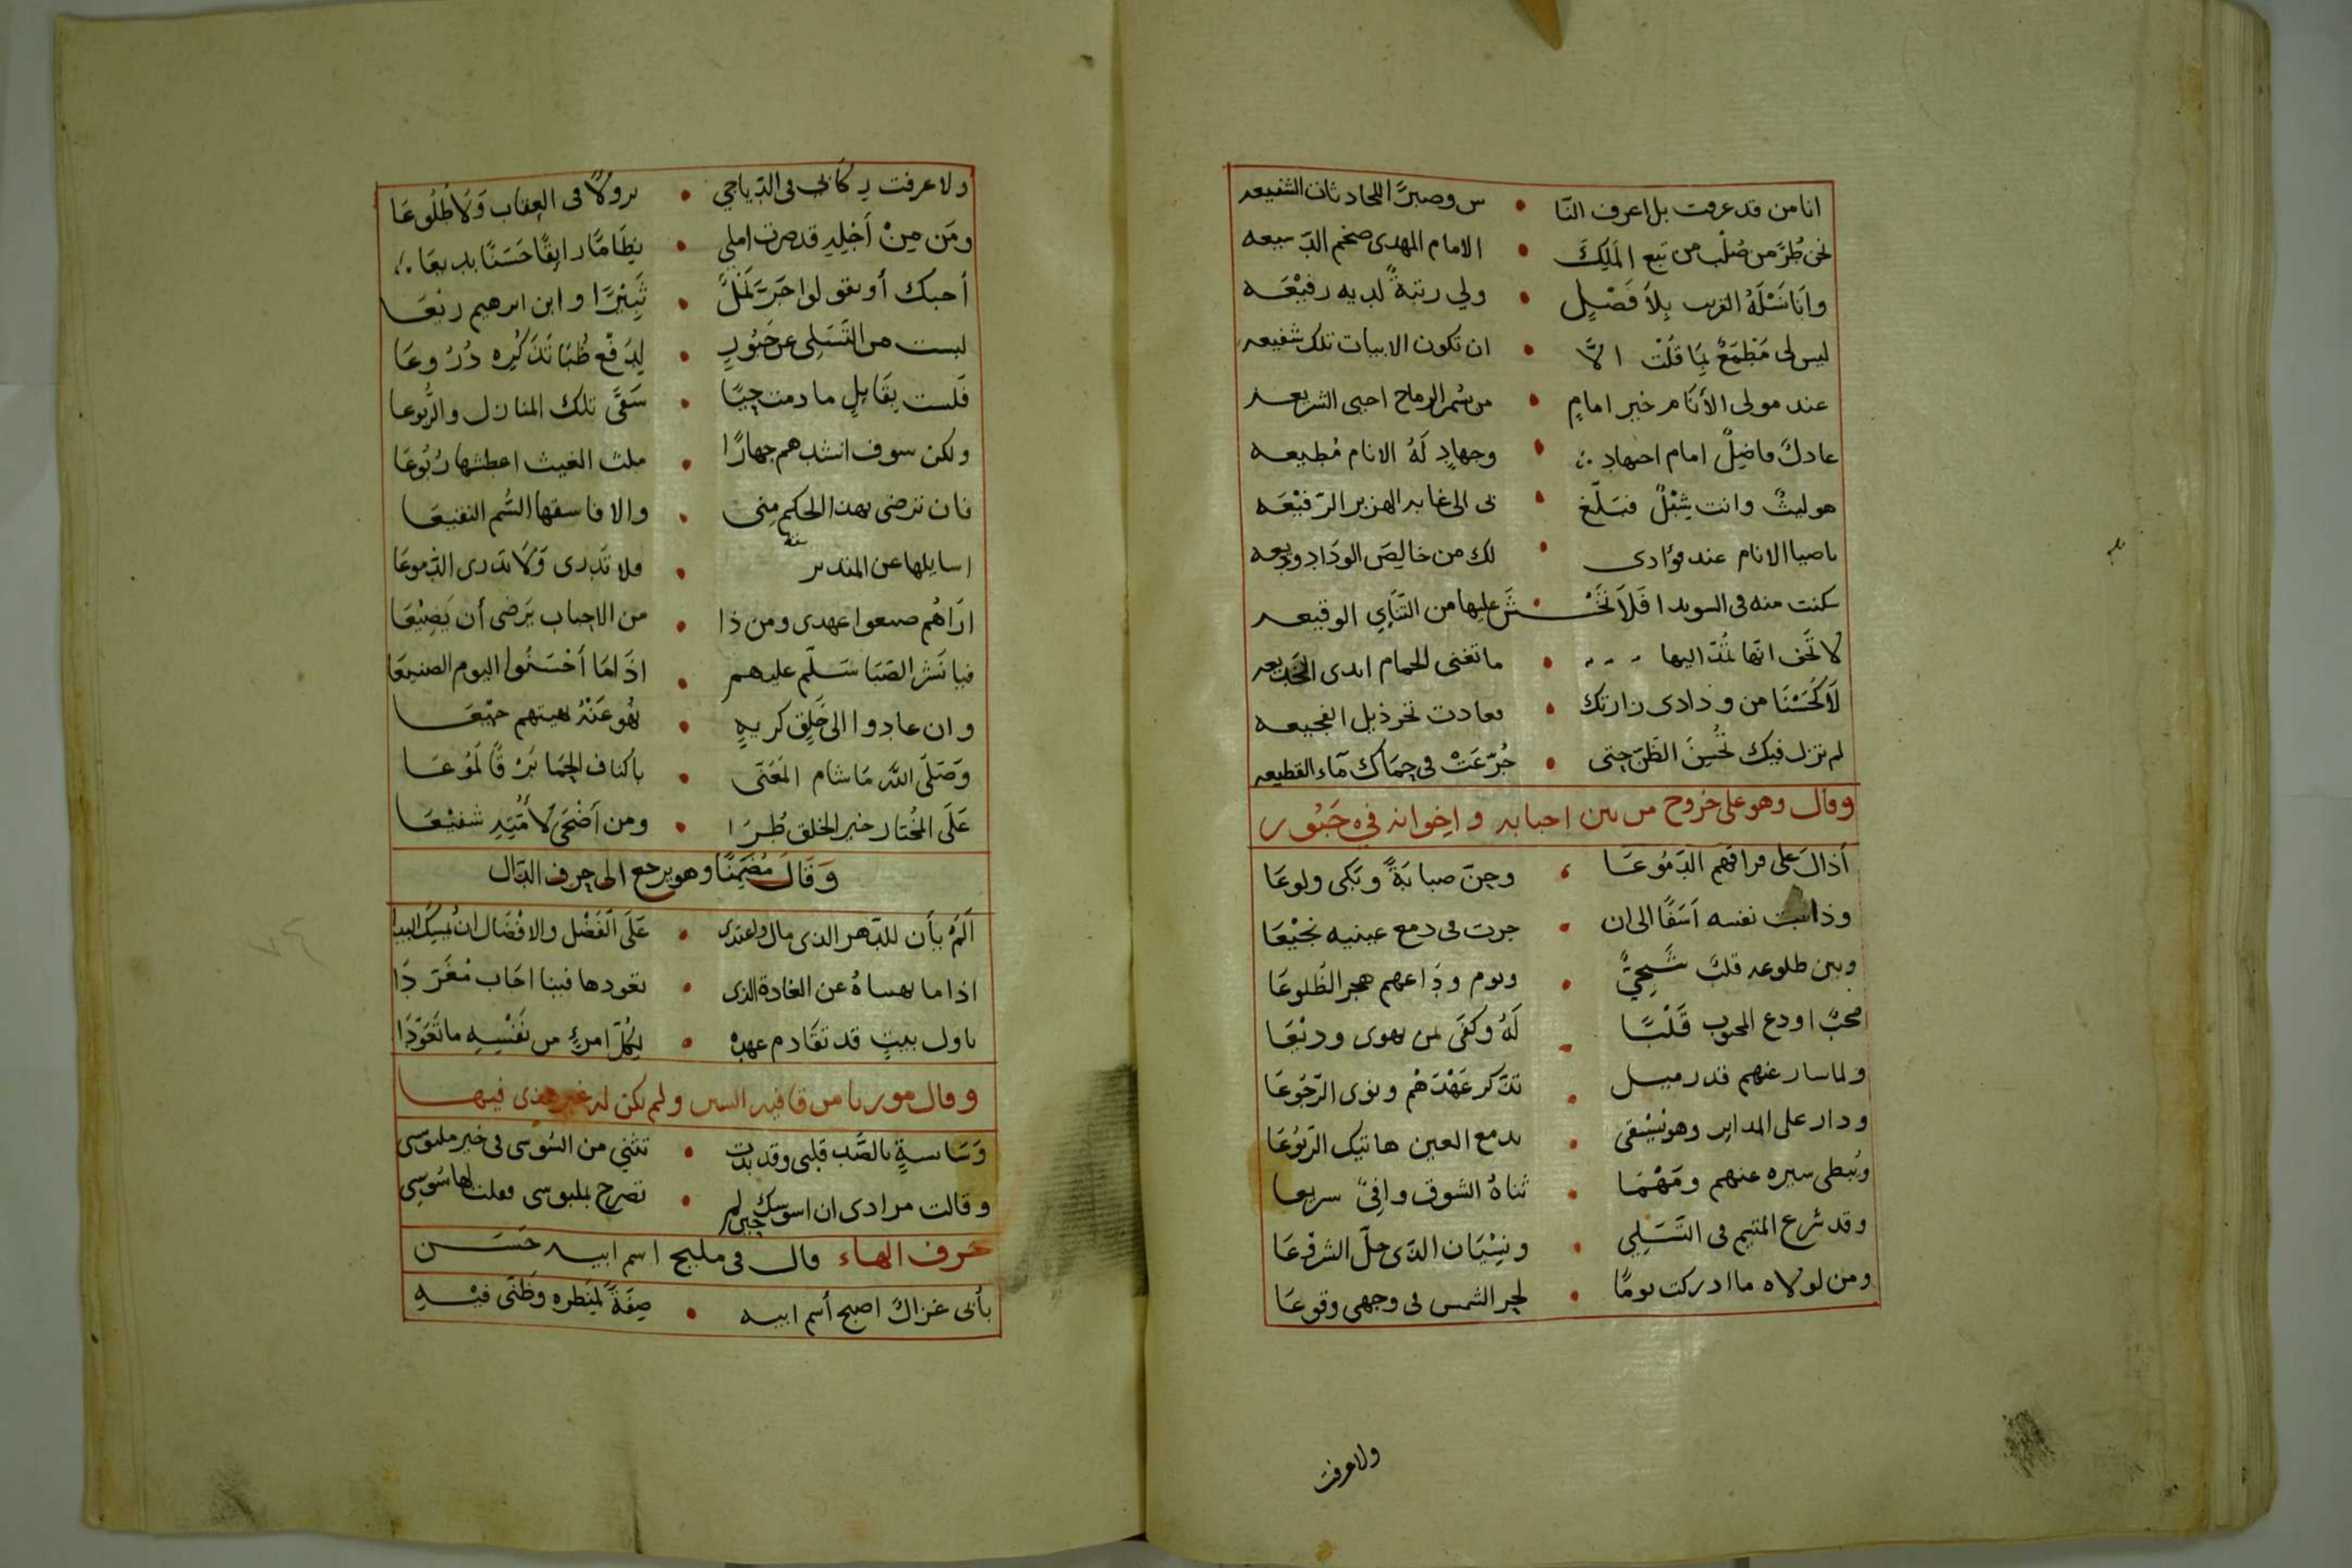 انا من قد عرفت بل اعرف النا • س وصبرًا للحادثات الشنيعه
نحن طُرَّ من صُلب من تبع المَلِكَ • الامام المهدى ضخم الدسيعه
وانا نَسْلَهُ القريب بِلاَ فَصْلٍ • ولي رتبةً لديه رفيْعَه
ليس لى مَطْمَعٌ بِمَا قُلْتُ الاَّ • ان تكون الابيات تلك شفيعه
عند مولى الأَنَام خير امامٍ • من سُمر الرماح احيى الشريعه
عادلٌ فاضِلٌ امام اجتهادٍ • وجهادٍ لَهُ الانام مُطيعه
هو ليثٌ وانت شِبْلٌ فبَلّغ • نى الى غابه الهزبر الرّفيْعَه
ياضيا الانام عند فؤادى • لك من خالِصَ الودَادِ وديعه
سكنت منه فى السويدا فَلاَ تَخْـ • ـشَ عليها من التَنَاءِي الوقيعه
لا تَخَف انّها تمُدّ اليها • ما تغنى الحمام ايدى الخديعه
لاَ كَحَسْنَا من ودادى زارتك • فعادت تجر ذيل الفجيعه
لم تزل فيك تُحْسِنُ الظَنّ حِتى • جُرّعَتْ فى حِمَاك مَآء القطيعه
وقال وهو على خروج من بين احبابه واخوانه فى حَبُور
أذالَ على فراقهم الدّمُوعَا • وحِنّ صبابَةً وبَكى ولوعَا
وذابت نفسه اَسَفًا الى ان • جرت فى دمع عينيه نجيْعَا
وبين طلوعه قلبٌ شَجِيٌّ • ويوم ودَاعهم هجر الطُلوعَا
محبٌ اودع المحبوب قَلْبًا • لَهُ وكفَى لمن يهوى وديْعَا
ولما سار عنهم قدر ميل • تذكر عَهْدَهُم ونوى الرّجُوعَا
ودار على المداير وهو يَسْقى • بدمع العين هاتيك الرّبُوْعَا
ويُبطى سيره عنهم ومَهْمَا • ثناهُ الشوق وافِىً سريعا
وقد شرع المتيم فى التَسَلِى • ونِسْيَان الذى حلّ الشرفْعَا
ومن لولاه ما ادركت يومًا • لجر الشمس فى وجهى وقوعَا
ولاعرفت
ولا عرفت ركَابى فى الدّياجي • نزولاً فى العِقَاب وَلاَ طُلُوعَا
ومَن مِنْ اَجْلِهِ قد صرت املى • نِظَامًا رايقًا حَسَنًا بديعَا
أحبك أو يقولوا جَرّ نَمْلٌ • ثَبِيْرًا وابن ابرهيم ريْعَـا
لبست من التَسَلِى عن حَبُورٍ • لِدَفْع ظُبَا تَذَكُرِه دُرُوعَا
فَلست بقَايلٍ ما دمت حِيًا • سَقَى تلك المنازل والرُّبوعا
ولكن سوف انشدهم جهارًا • ملث الغيث اعطشها رُبُوعَا
فان ترضى بهذا الحكم مِنى • والا فاسقها السُّم النقيعَا
اسايلها عن المتدير • فلا تَدرى وَلاَ تدرى الدّموعَا
ارَاهُم ضيعوا عهدى ومن ذا • من الاحباب يَرضى أن يَضِيْعَا
فيا نَشر الصَبَا سَلّم عليهم • اذَا مَا اَحْسَنُوا اليوم الصنيعَا
وان عادوا الى خَلِقٍ كريمٍ • فهو عَنْدُ هيتهم جيْعَا
وَصَلَى اللهُ مَا شام المُعَنّى • باكناف الحِمَا بَرْقًا لَمُوعَـا
عَلَى المُختار خير الخلق طُـرَا • ومن اَضْحَى لاُمَّتِهِ شفيْعَـا
وَقَالَ مُضَمِنًا وهو يرجع الى حرف الدّال
اَلَمْ يأن للدّهر الذى مال واعتدى • عَلَى الفَضْل والافْضَال ان يمسك اليدا
اذا ما نهيناهُ عن العَادة الذى • تعودها فينا اجَاب مُغَرّدَا
باول بيتٍ قد تقَادم عهده • لِكُلّ امرئٍ من نَفْسِهِ ما تَعَوّدَا
وقال موريا من قافيه السين ولم يكن له غير هذى فيهـا
وَسَايسةٍ بالصَّب قلبى وقد بدت • تثني من السُوسى فى خير ملبوسى
وقالت مرادى ان اسوسك جبى لم • تصرح بملبوسى فقلت لها سُوسِى
حَرف الهاء قال فى مليح اسم ابيه حَسَـن
بأبى غزالٌ اصبح اُسم ابيه • صِفَةً لِمَنظره وظَنّى فيْـهِ